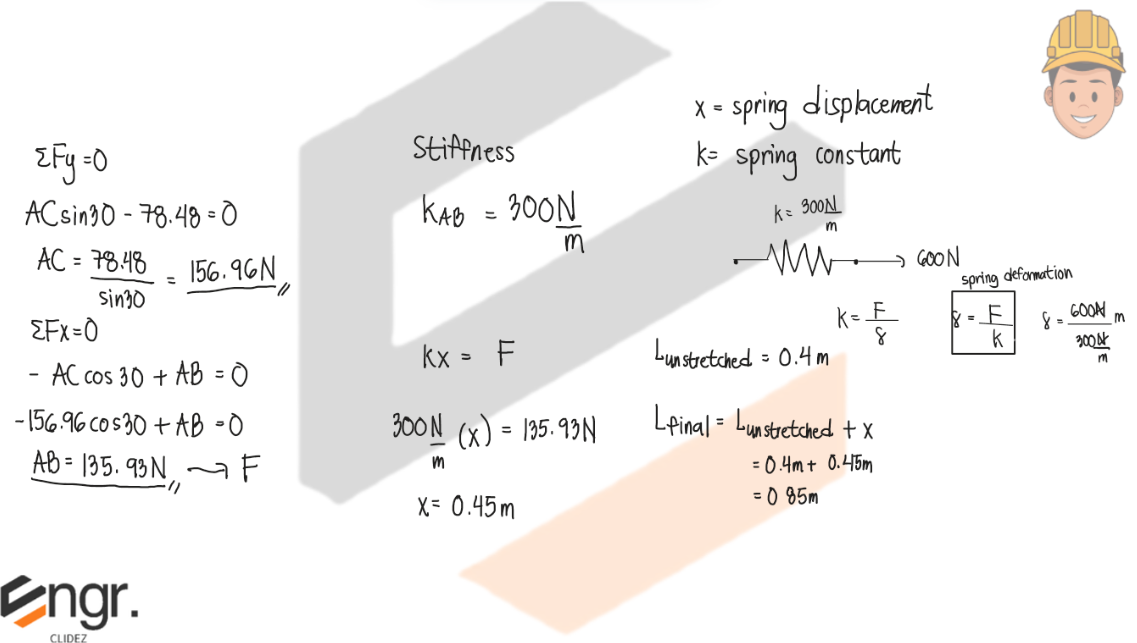 ΣFy=0
ACsin30 - 78.48 = 0
AC = 78.48/sin30 = 156.96N
ΣFx=0
- ACcos30 + AB = 0
-156.96cos30 + AB = 0
AB = 135.93N → F
Stiffness
kAB = 300N/m
kx = F
300N/m (x) = 135.93N
x = 0.45m
x = spring displacement
k = spring constant
k = 300N/m
600N
spring deformation
k = F/δ
δ = F/k
δ = 600N/300N/m m
Lunstretched = 0.4m
Lfinal = Lunstretched + x
= 0.4m + 0.45m
= 0 85m
Engr.
CLIDEZ